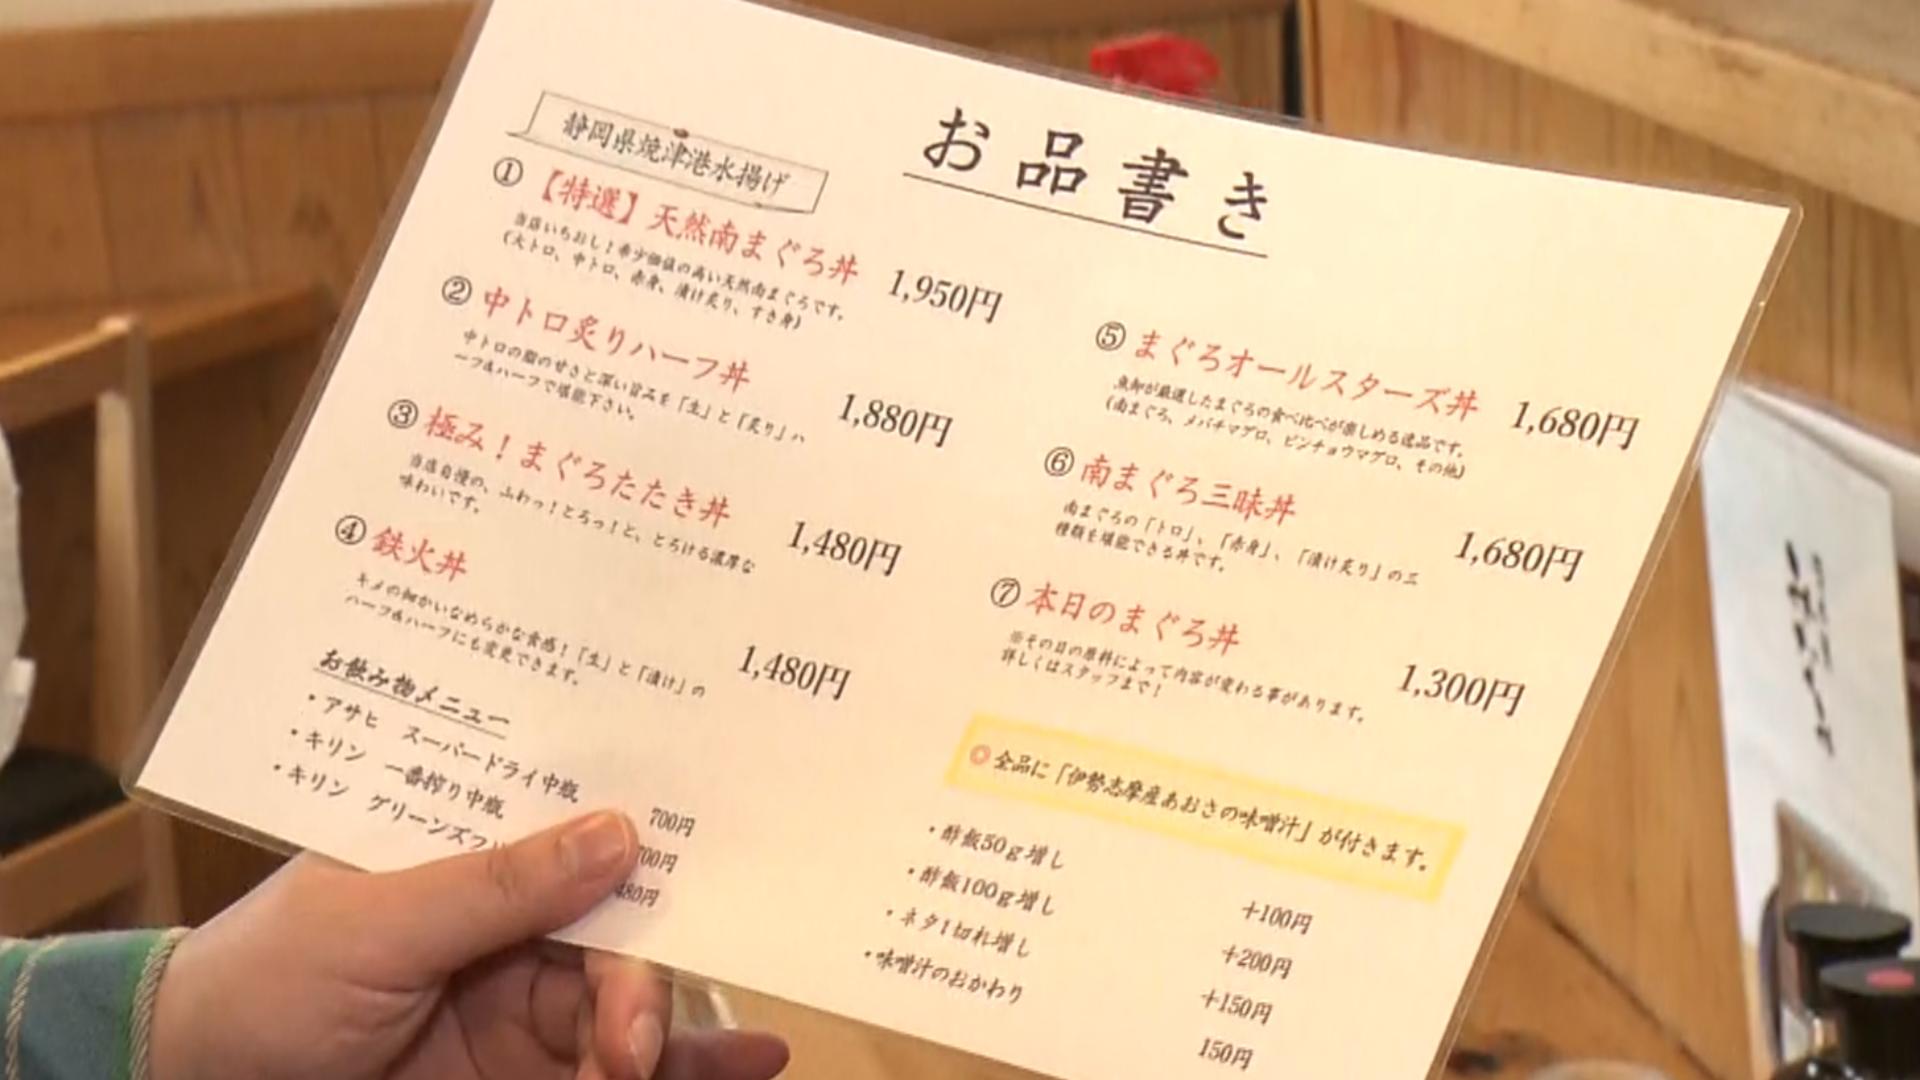 お品書き
静岡県焼津港水揚げ
① 【特選】天然南まぐろ丼 1,950円
当店いちおし！希少価値の高い天然南まぐろです。
(大トロ、中トロ、赤身、漬け炙り、すき身)
② 中トロ炙りハーフ丼 1,880円
中トロの脂の甘さと深い旨みを「生」と「炙り」ハ
ーフ&ハーフで堪能下さい。
③ 極み！まぐろたたき丼 1,480円
当店自慢の、ふわっ！とろっ！と、とろける濃厚な
味わいです。
④ 鉄火丼 1,480円
キメの細かいなめらかな食感！「生」と「漬け」の
ハーフ&ハーフにも変更できます。
お飲み物メニュー
・アサヒ スーパードライ中瓶 700円
・キリン 一番搾り中瓶 700円
・キリン グリーンズフ 480円
⑤ まぐろオールスターズ丼 1,680円
魚卸が厳選したまぐろの食べ比べが楽しめる逸品です。
(南まぐろ、メバチマグロ、ビンチョウマグロ、その他)
⑥ 南まぐろ三昧丼 1,680円
南まぐろの「トロ」、「赤身」、「漬け炙り」の三
種類を堪能できる丼です。
⑦ 本日のまぐろ丼 1,300円
※その日の原料によって内容が変わる事があります。
詳しくはスタッフまで！
◎全品に「伊勢志摩産あおさの味噌汁」が付きます。
・酢飯50g増し +100円
・酢飯100g増し +200円
・ネタ1切れ増し +150円
・味噌汁のおかわり 150円